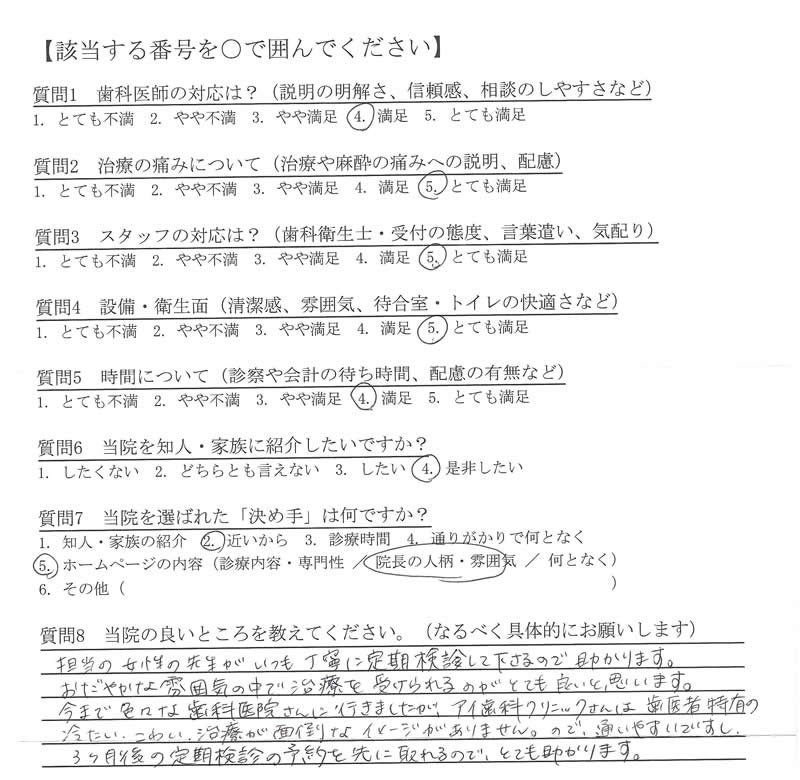 【該当する番号を〇で囲んでください】
質問1 歯科医師の対応は?(説明の明解さ、信頼感、相談のしやすさなど)
1. とても不満 2. やや不満 3. やや満足 4. 満足 5. とても満足
質問2 治療の痛みについて(治療や麻酔の痛みへの説明、配慮)
1. とても不満 2. やや不満 3. やや満足 4. 満足 5. とても満足
質問3 スタッフの対応は?(歯科衛生士・受付の態度、言葉遣い、気配り)
1. とても不満 2. やや不満 3. やや満足 4. 満足 5. とても満足
質問4 設備・衛生面(清潔感、雰囲気、待合室・トイレの快適さなど)
1. とても不満 2. やや不満 3. やや満足 4. 満足 5. とても満足
質問5 時間について(診察や会計の待ち時間、配慮の有無など)
1. とても不満 2. やや不満 3. やや満足 4. 満足 5. とても満足
質問6 当院を知人・家族に紹介したいですか?
1. したくない 2. どちらとも言えない 3. したい 4. 是非したい
質問7 当院を選ばれた「決め手」は何ですか?
1. 知人・家族の紹介 2. 近いから 3. 診療時間 4. 通りがかりで何となく
5. ホームページの内容(診療内容・専門性 / 院長の人柄・雰囲気 / 何となく)
6. その他( )
質問8 当院の良いところを教えてください。(なるべく具体的にお願いします)
担当の女性の先生がいつも丁寧に定期検診して下さるので助かります。
おだやかな雰囲気の中で治療を受けられるのがとても良いと思います。
今まで色々な歯科医院さんに行きましたが、アイ歯科クリニックさんは歯医者特有の
冷たい、こわい、治療が面倒なイメージがありません。ので、通いやすいですし、
3ヶ月後の定期検診の予約を先に取れるので、とても助かります。